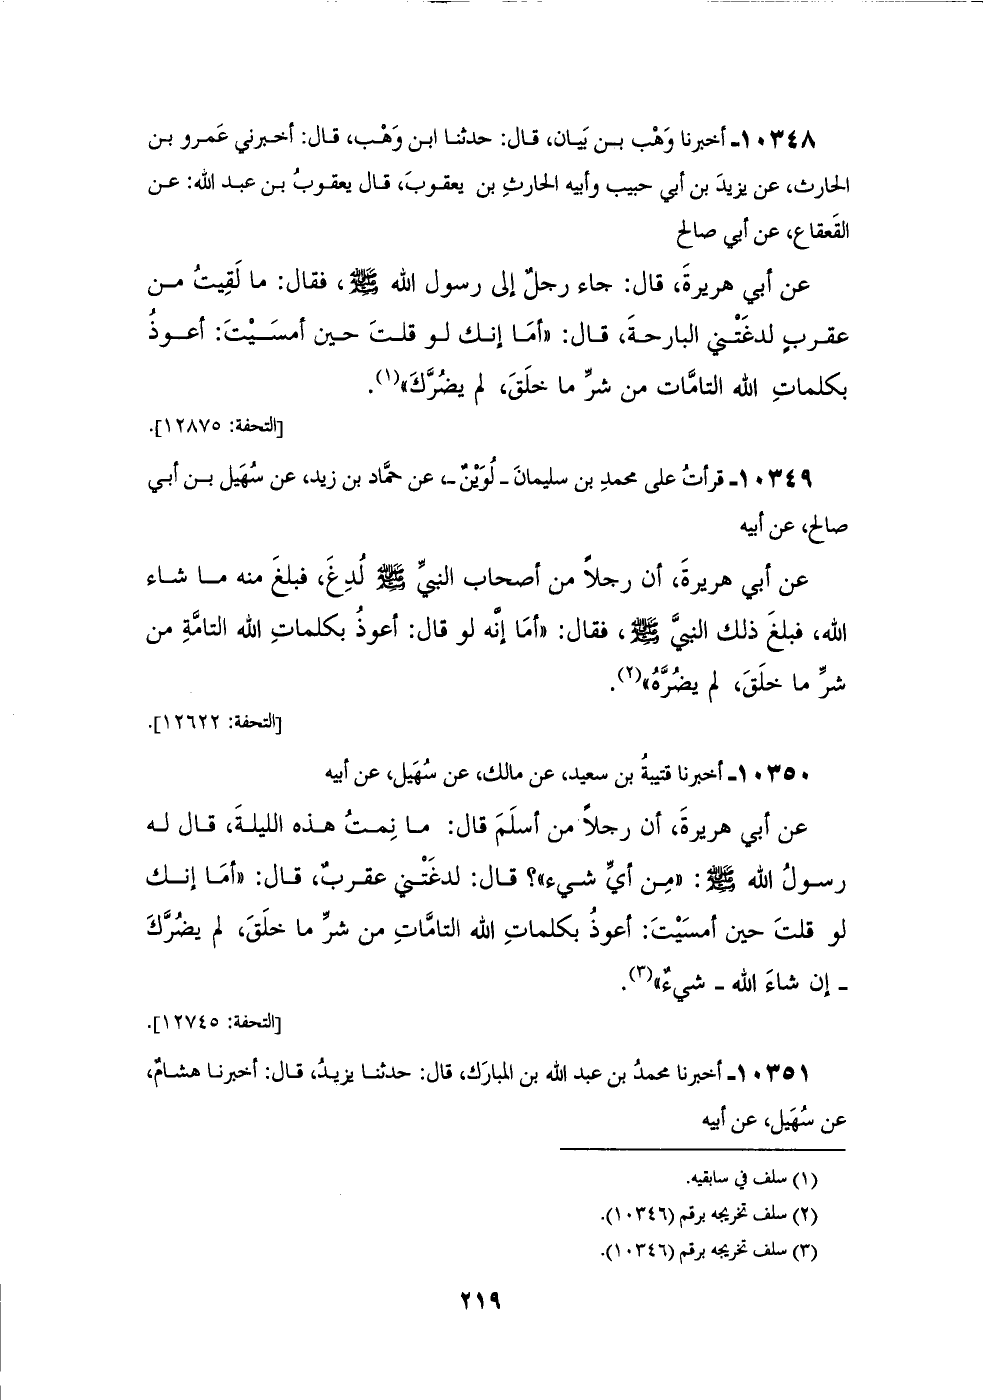 ١٠٣٤٨ـ أخبرنا وَهْب بـن بَيـان، قـال: حدثنـا ابـن وَهْـب، قـال: أخـبرني عَمـرو بـن
الحارث، عن يزيدَ بن أبي حبيب وأبيه الحارثِ بن يعقـوبَ، قـال يعقـوبُ بـن عبـد الله: عـن
القَعقاع، عن أبي صالح
عن أبي هريرةَ، قال: جاء رجلٌ إلى رسول الله ﷺ، فقال: ما لَقِيتُ مـن
عقـربٍ لدغَتْـني البارحـةَ، قـال: «أمَـا إنـك لـو قلـتَ حـين أمسَـيْـتَ: أعـوذُ
بكلماتِ الله التامَّات من شرِّ ما خلَقَ، لم يضُرَّكَ»(١).
[التحفة: ١٢٨٧٥].
١٠٣٤٩ـ قرأتُ على محمدِ بن سليمانَ ـ لُوَيْنٌ ـ، عن حمَّاد بن زيد، عن سُهَيل بـن أبـي
صالح، عن أبيه
عن أبي هريرةَ، أن رجلاً من أصحاب النبيِّ ﷺ لُدِغَ، فبلغَ منه مـا شـاء
الله، فبلغَ ذلك النبيَّ ﷺ، فقال: «أمَا إنَّه لو قال: أعوذُ بكلماتِ الله التامَّةِ من
شرِّ ما خلَقَ، لم يضُرَّهُ»(٢).
[التحفة: ١٢٦٢٢].
١٠٣٥٠ـ أخبرنا قتيبةُ بن سعيد، عن مالك، عن سُهَيل، عن أبيه
عن أبي هريرةَ، أن رجلاً من أسلَمَ قال: مـا نِمـتُ هـذه الليلـةَ، قـال لـه
رسـولُ الله ﷺ: «مِـن أيِّ شـيء»؟ قـال: لدغَتْـني عقـربٌ، قـال: «أمَـا إنـك
لو قلتَ حين أمسَيْتَ: أعوذُ بكلماتِ الله التامَّاتِ من شرِّ ما خلَقَ، لم يضُرَّكَ
ـ إن شاءَ الله ـ شيءٌ»(٣).
[التحفة: ١٢٧٤٥].
١٠٣٥١ـ أخبرنا محمدُ بن عبد الله بن المبارَك، قال: حدثنـا يزيـدُ، قـال: أخبرنـا هشـامٌ،
عن سُهَيل، عن أبيه
(١) سلف في سابقيه.
(٢) سلف تخريجه برقم (١٠٣٤٦).
(٣) سلف تخريجه برقم (١٠٣٤٦).
٢١٩